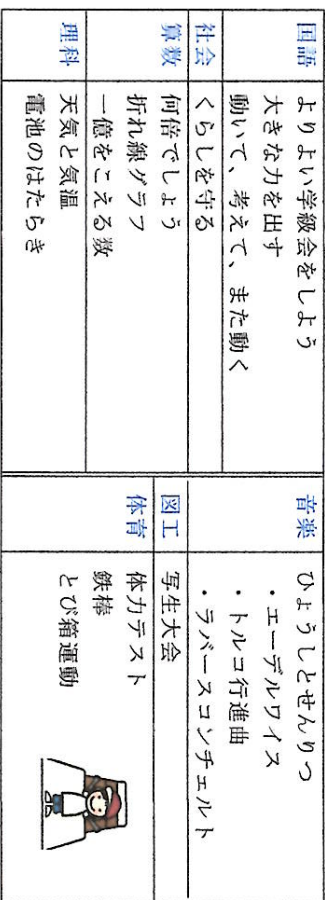 国語
よりよい学級会をしよう
大きな力を出す
動いて、考えて、また動く
社会
くらしを守る
算数
何倍でしょう
折れ線グラフ
一億をこえる数
理科
天気と気温
電池のはたらき
音楽
ひょうしとせんりつ
・エーデルワイス
・トルコ行進曲
・ラバースコンチェルト
図工
写生大会
体育
体力テスト
鉄棒
とび箱運動